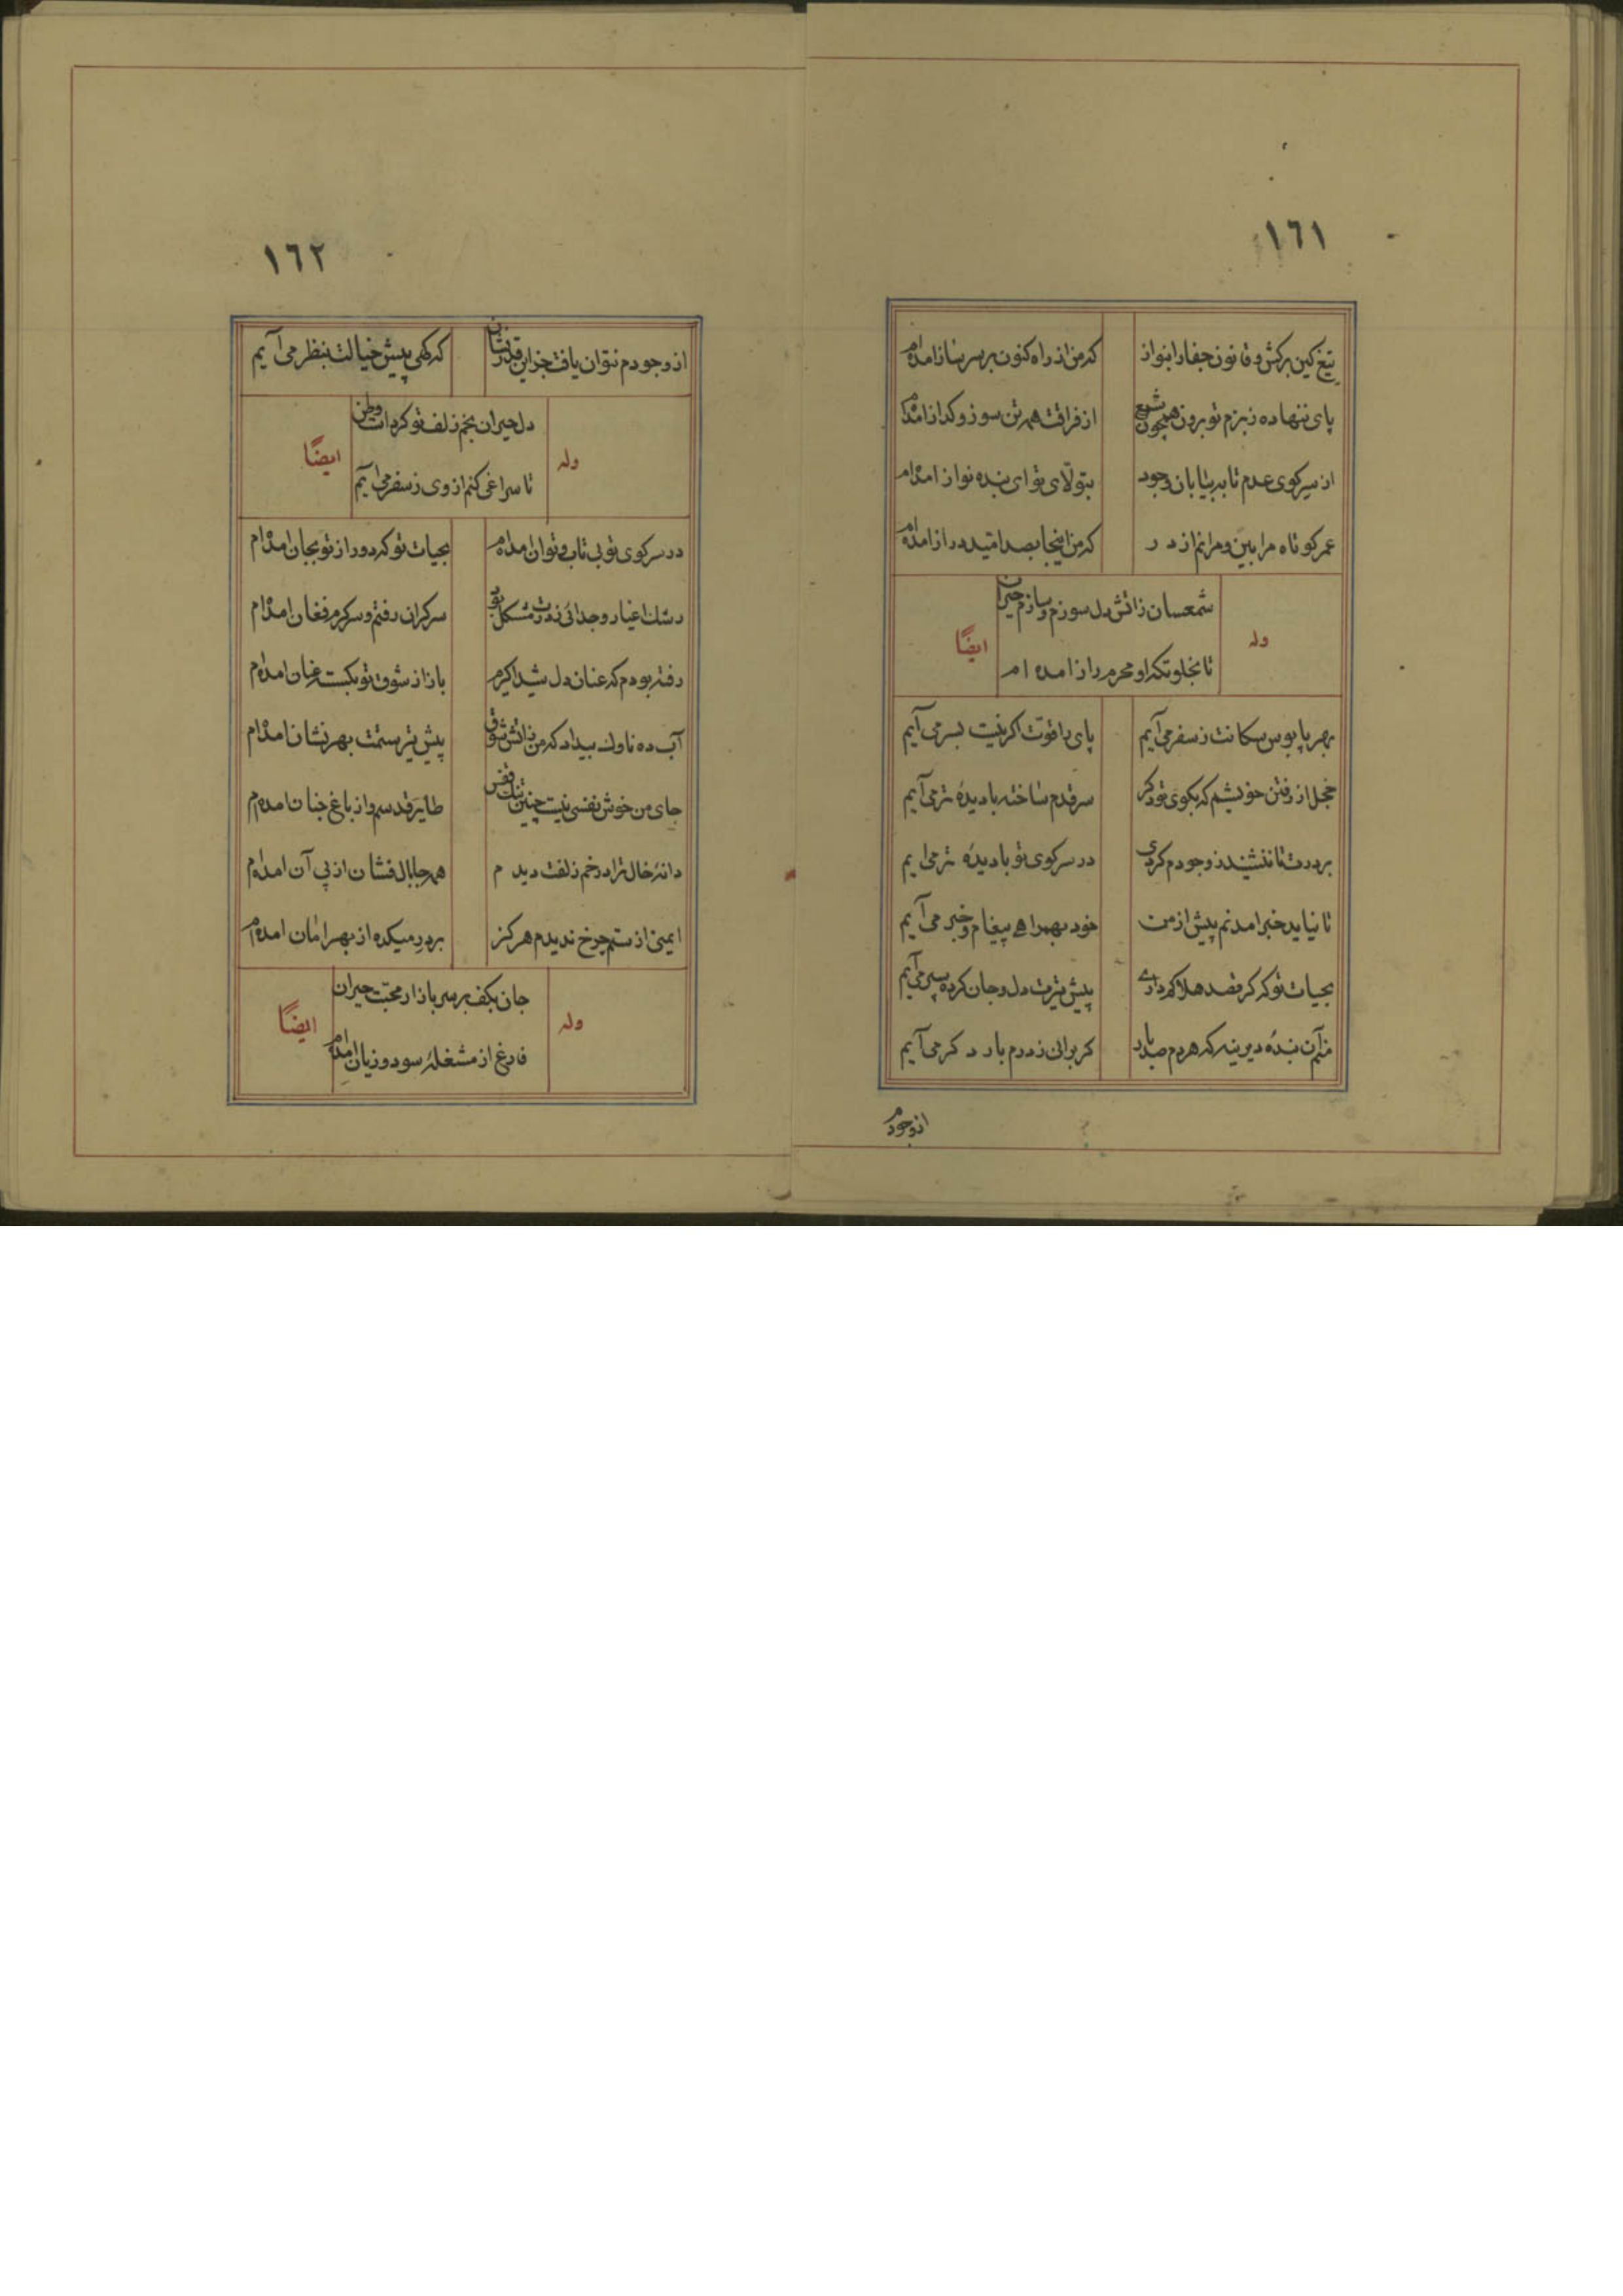 ١٦١
تیغ کین برکش و قانون جفا را بنواز
که من از راه کنون بر سر ساز آمده‌ام
پای ننهاده ز بزم تو برون همچون شمع
از فراقت همه تن سوز و کداز آمده‌ام
از سر کوی عدم تا به بیابان وجود
بتولّای تو ای بنده نواز آمده‌ام
عمر کوتاه مرا بین و مرانم از در
که من اینجا بصد امّید دراز آمده‌ام
شمعسان ز اتش دل سوزم و سازم حیران
وله
ایضًا
تا بخلوتکه او محرم راز امده ام
بهر پابوس سکانت ز سفر می‌آیم
پای را قوّت اکر نیست بسر می‌آیم
خجل از رفتن خویشم که بکوی تو دکر
سر قدم ساخته با دیدهٔ تر می‌آیم
بر درت تا ننشیند ز وجودم کردی
در سر کوی تو با دیدهٔ تر می‌ایم
تا نیاید خبر امدنم پیش از من
خود بهمراهے پیغام و خبر می‌آیم
بحیات تو که کر قصد هلاکم دارے
پیش تیرت دل و جان کرده سپر می‌آیم
منم آن بندهٔ دیرینه که هر دم صد بار
کر برانی ز درم بار دکر می‌آیم
از وجودم
١٦٢
از وجودم نتوان یافت جز این قدر نشان
که کهی پیش خیالت بنظر می‌آیم
دل حیران بخم زلف تو کرد است وطن
وله
ایضًا
تا سراغی کنم از وی ز سفر می‌آیم
در سر کوی تو بی تاب و توان امده‌ام
بحیات تو که دور از تو بجان امده‌ام
رشک اغیار و جدائی ز درت مشکل بود
سر کران رفتم و سرکرم فغان امده‌ام
رفته بودم که عنان دل شیدا کیرم
باز از شوق تو بکسسته عنان امده‌ام
آب ده ناوک بیداد که من ز اتش شوق
پیش تیر ستمت بهر نشان امده‌ام
جای من خوش نفسی نیست چنین تنک قفس
طایر قدسم و از باغ جنان امده‌ام
دانهٔ خال ترا در خم زلفت دیدم
همه جا بال فشان از پی آن امده‌ام
ایمنی از ستم چرخ ندیدم هرکز
بر در میکده از بهر امان امده‌ام
جان بکف بر سر بازار محبّت حیران
وله
ایضًا
فارغ از مشغلهٔ سود و زیان امده‌ام